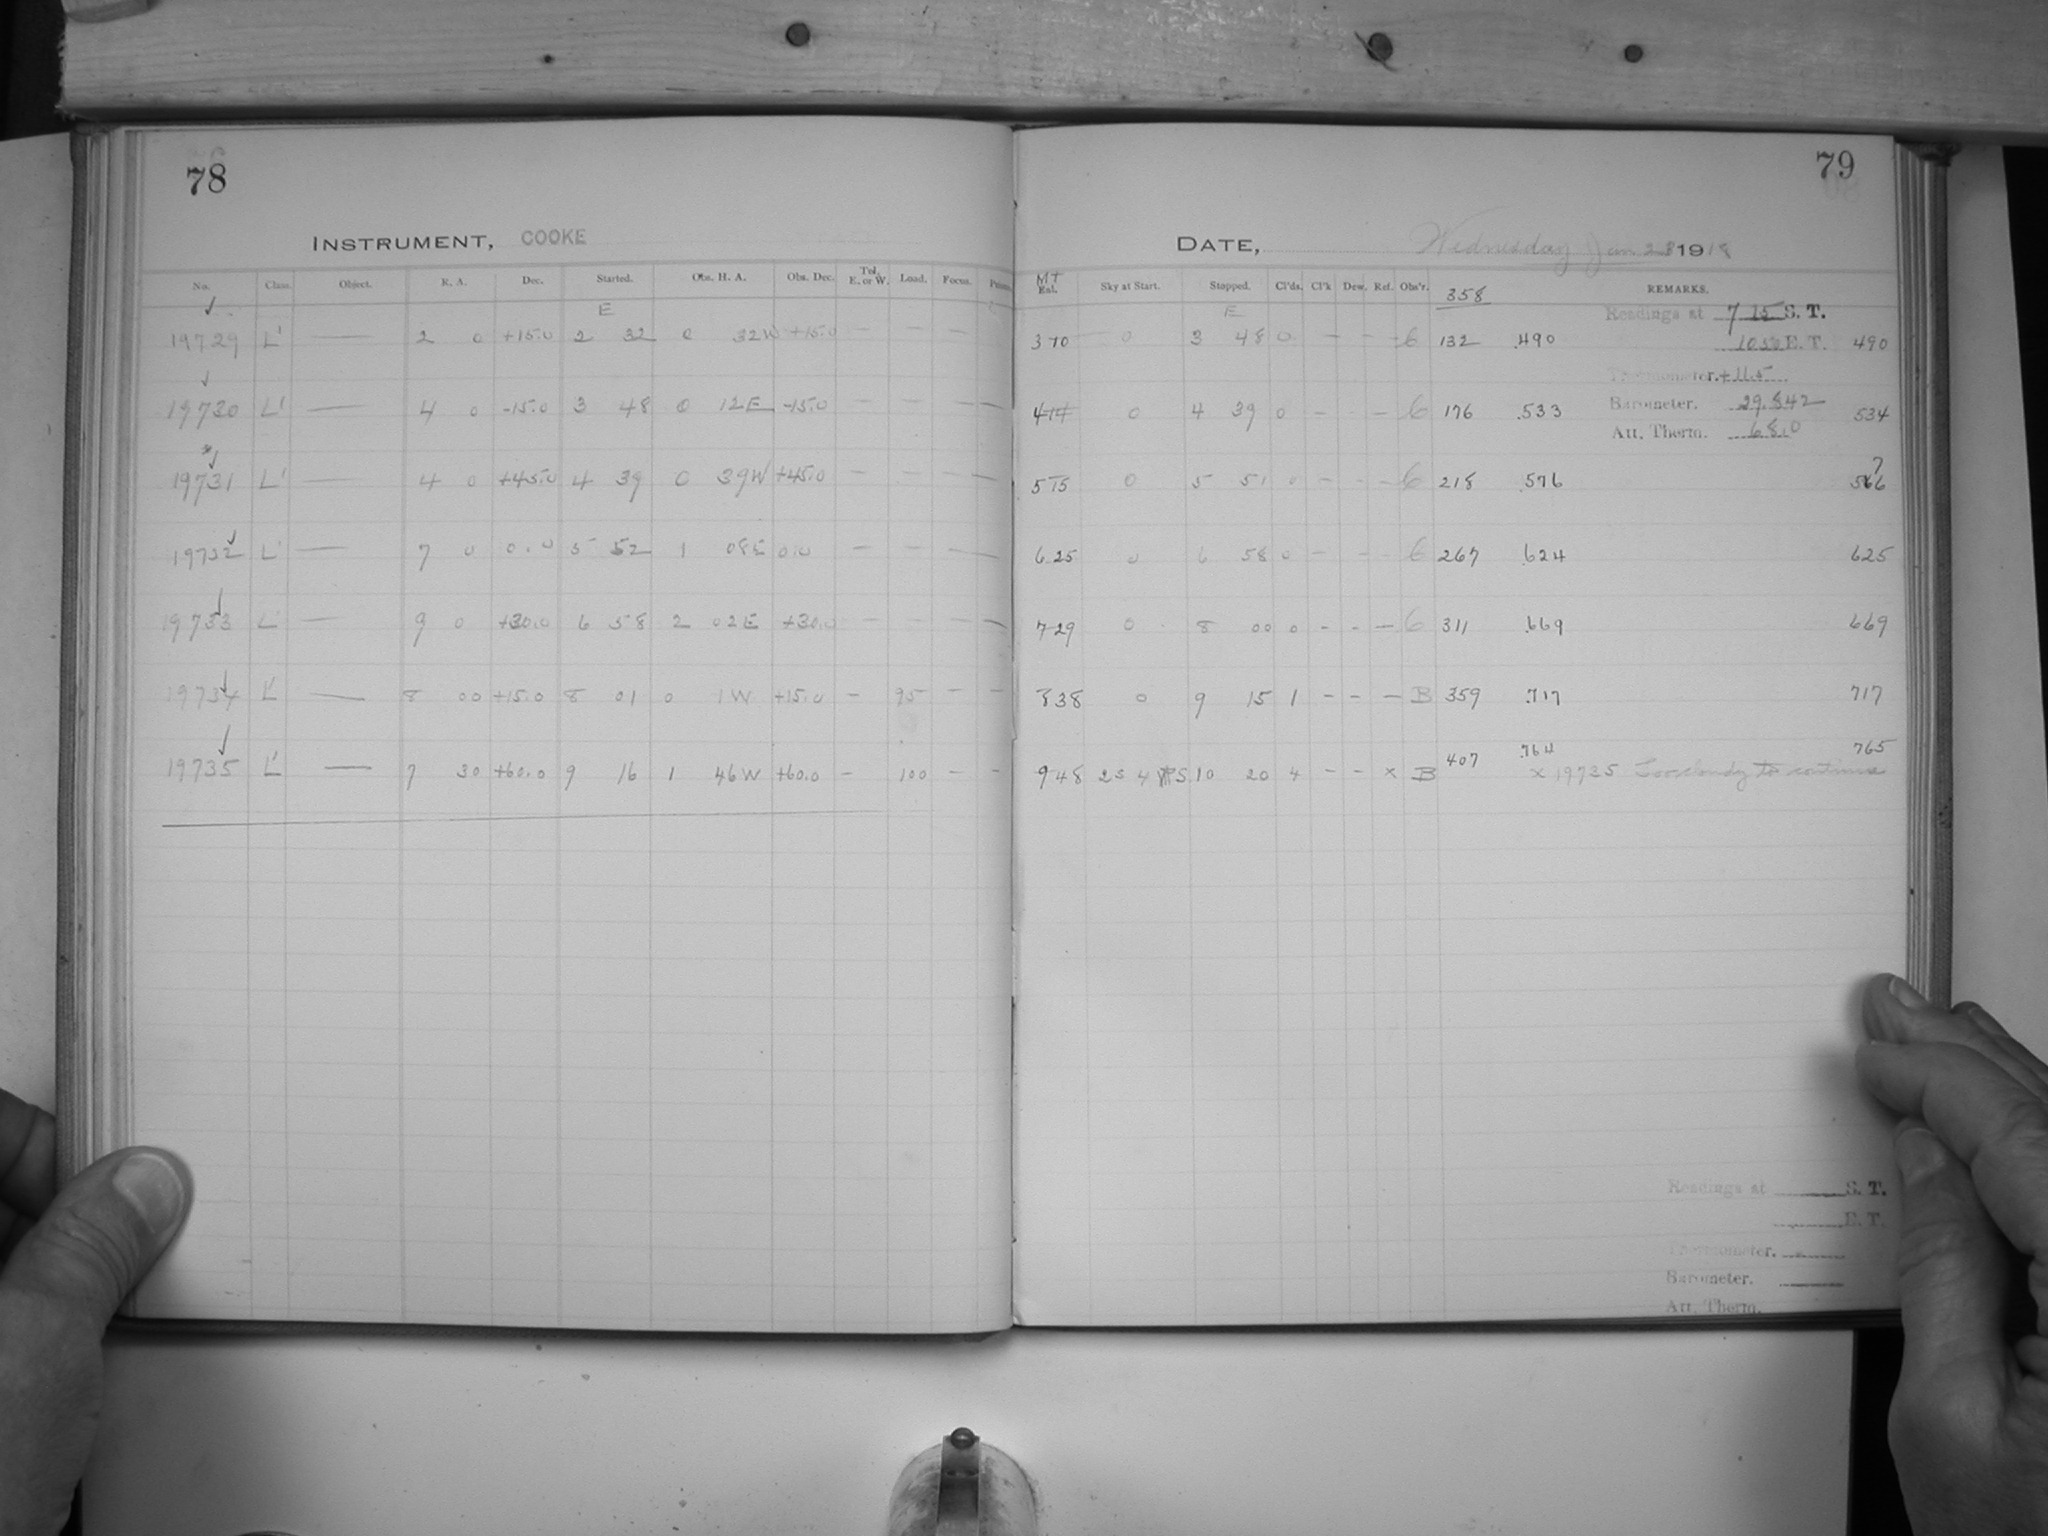 78
INSTRUMENT, COOKE
No. Class. Object. R. A. Dec. Started. Obs. H. A. Obs. Dec. Tel. E. or W. Load. Focus.
E
19729 L' — 2 0 +15.0 2 32 0 32W +15.0 — — —
19730 L' — 4 0 -15.0 3 48 0 12E -15.0 — — — —
19731 L' — 4 0 +45.0 4 39 0 39W +45.0 — — — —
19732 L' — 7 0 0.0 5 52 1 08E 0.0 — — — —
19733 L' — 9 0 +30.0 6 58 2 02E +30.0 — — — —
19734 L' — 8 00 +15.0 8 01 0 1W +15.0 - 95 - -
19735 L' — 7 30 +60.0 9 16 1 46W +60.0 - 100 - -
79
DATE, Wednesday Jan 23 1918
MT
Sky at Start. Stopped. Cl'ds. Cl'k Dew. Ref. Obs'r. 358 REMARKS.
E
Readings at 7 15 S. T.
3 10 0 3 48 0 — — - 6 132 .490 E. T. 490
Thermometer. +11.5
4 14 0 4 39 0 - - - 6 176 .533 Barometer. 29.842 534
Att. Therm. 68.0
5 15 0 5 51 0 - - - 6 218 .576 ?
6 25 0 6 58 0 - - - 6 267 .624 625
7 29 0 8 00 0 - - — 6 311 .669 669
8 38 0 9 15 1 - - — B 359 .717 717
9 48 10 20 4 - - x B 407 .764 765
x 19735 Too cloudy to continue
Readings at S. T.
E. T.
Thermometer.
Barometer.
Att. Therm.